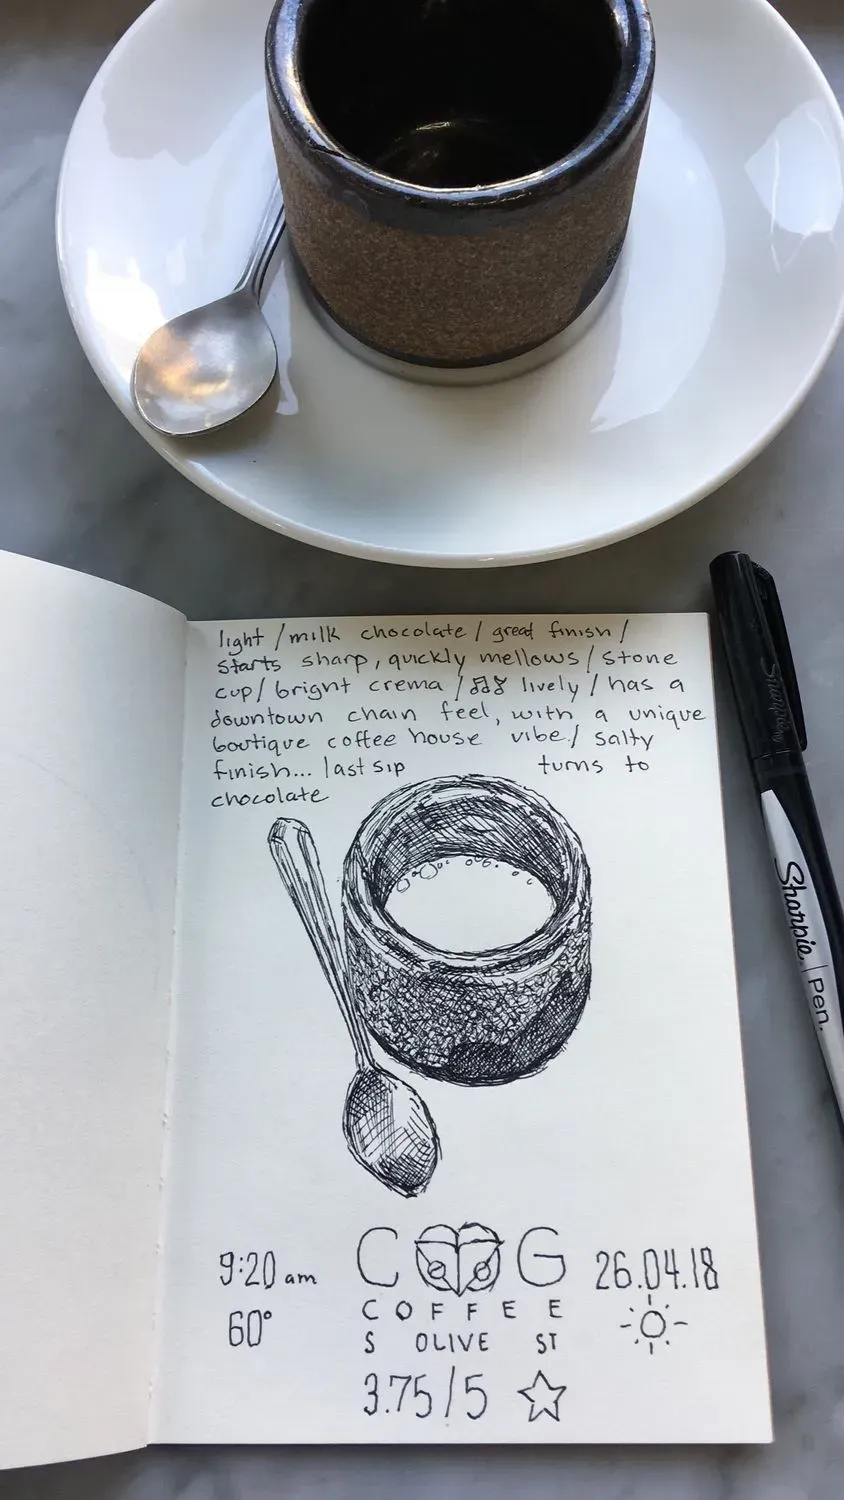 light / milk chocolate / great finish /
starts sharp, quickly mellows / stone
cup / bright crema / lively / has a
downtown chain feel, with a unique
boutique coffee house vibe / salty
finish... last sip turns to
chocolate
9:20 am
60°
C G
COFFEE
S OLIVE ST
3.75/5
26.04.18
Sharpie
Sharpie | Pen.